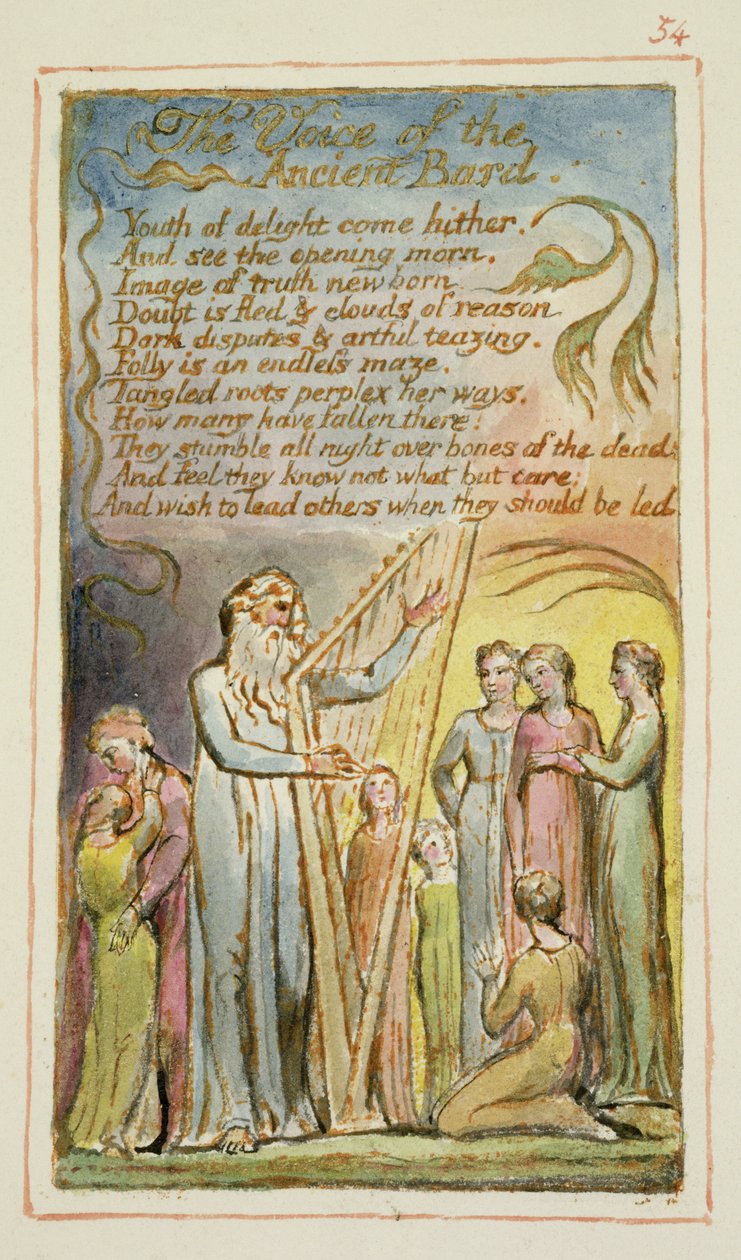 54
The Voice of the
Ancient Bard.
Youth of delight come hither.
And see the opening morn,
Image of truth new born
Doubt is fled & clouds of reason
Dark disputes & artful teazing.
Folly is an endless maze.
Tangled roots perplex her ways.
How many have fallen there!
They stumble all night over bones of the dead;
And feel they know not what but care;
And wish to lead others when they should be led